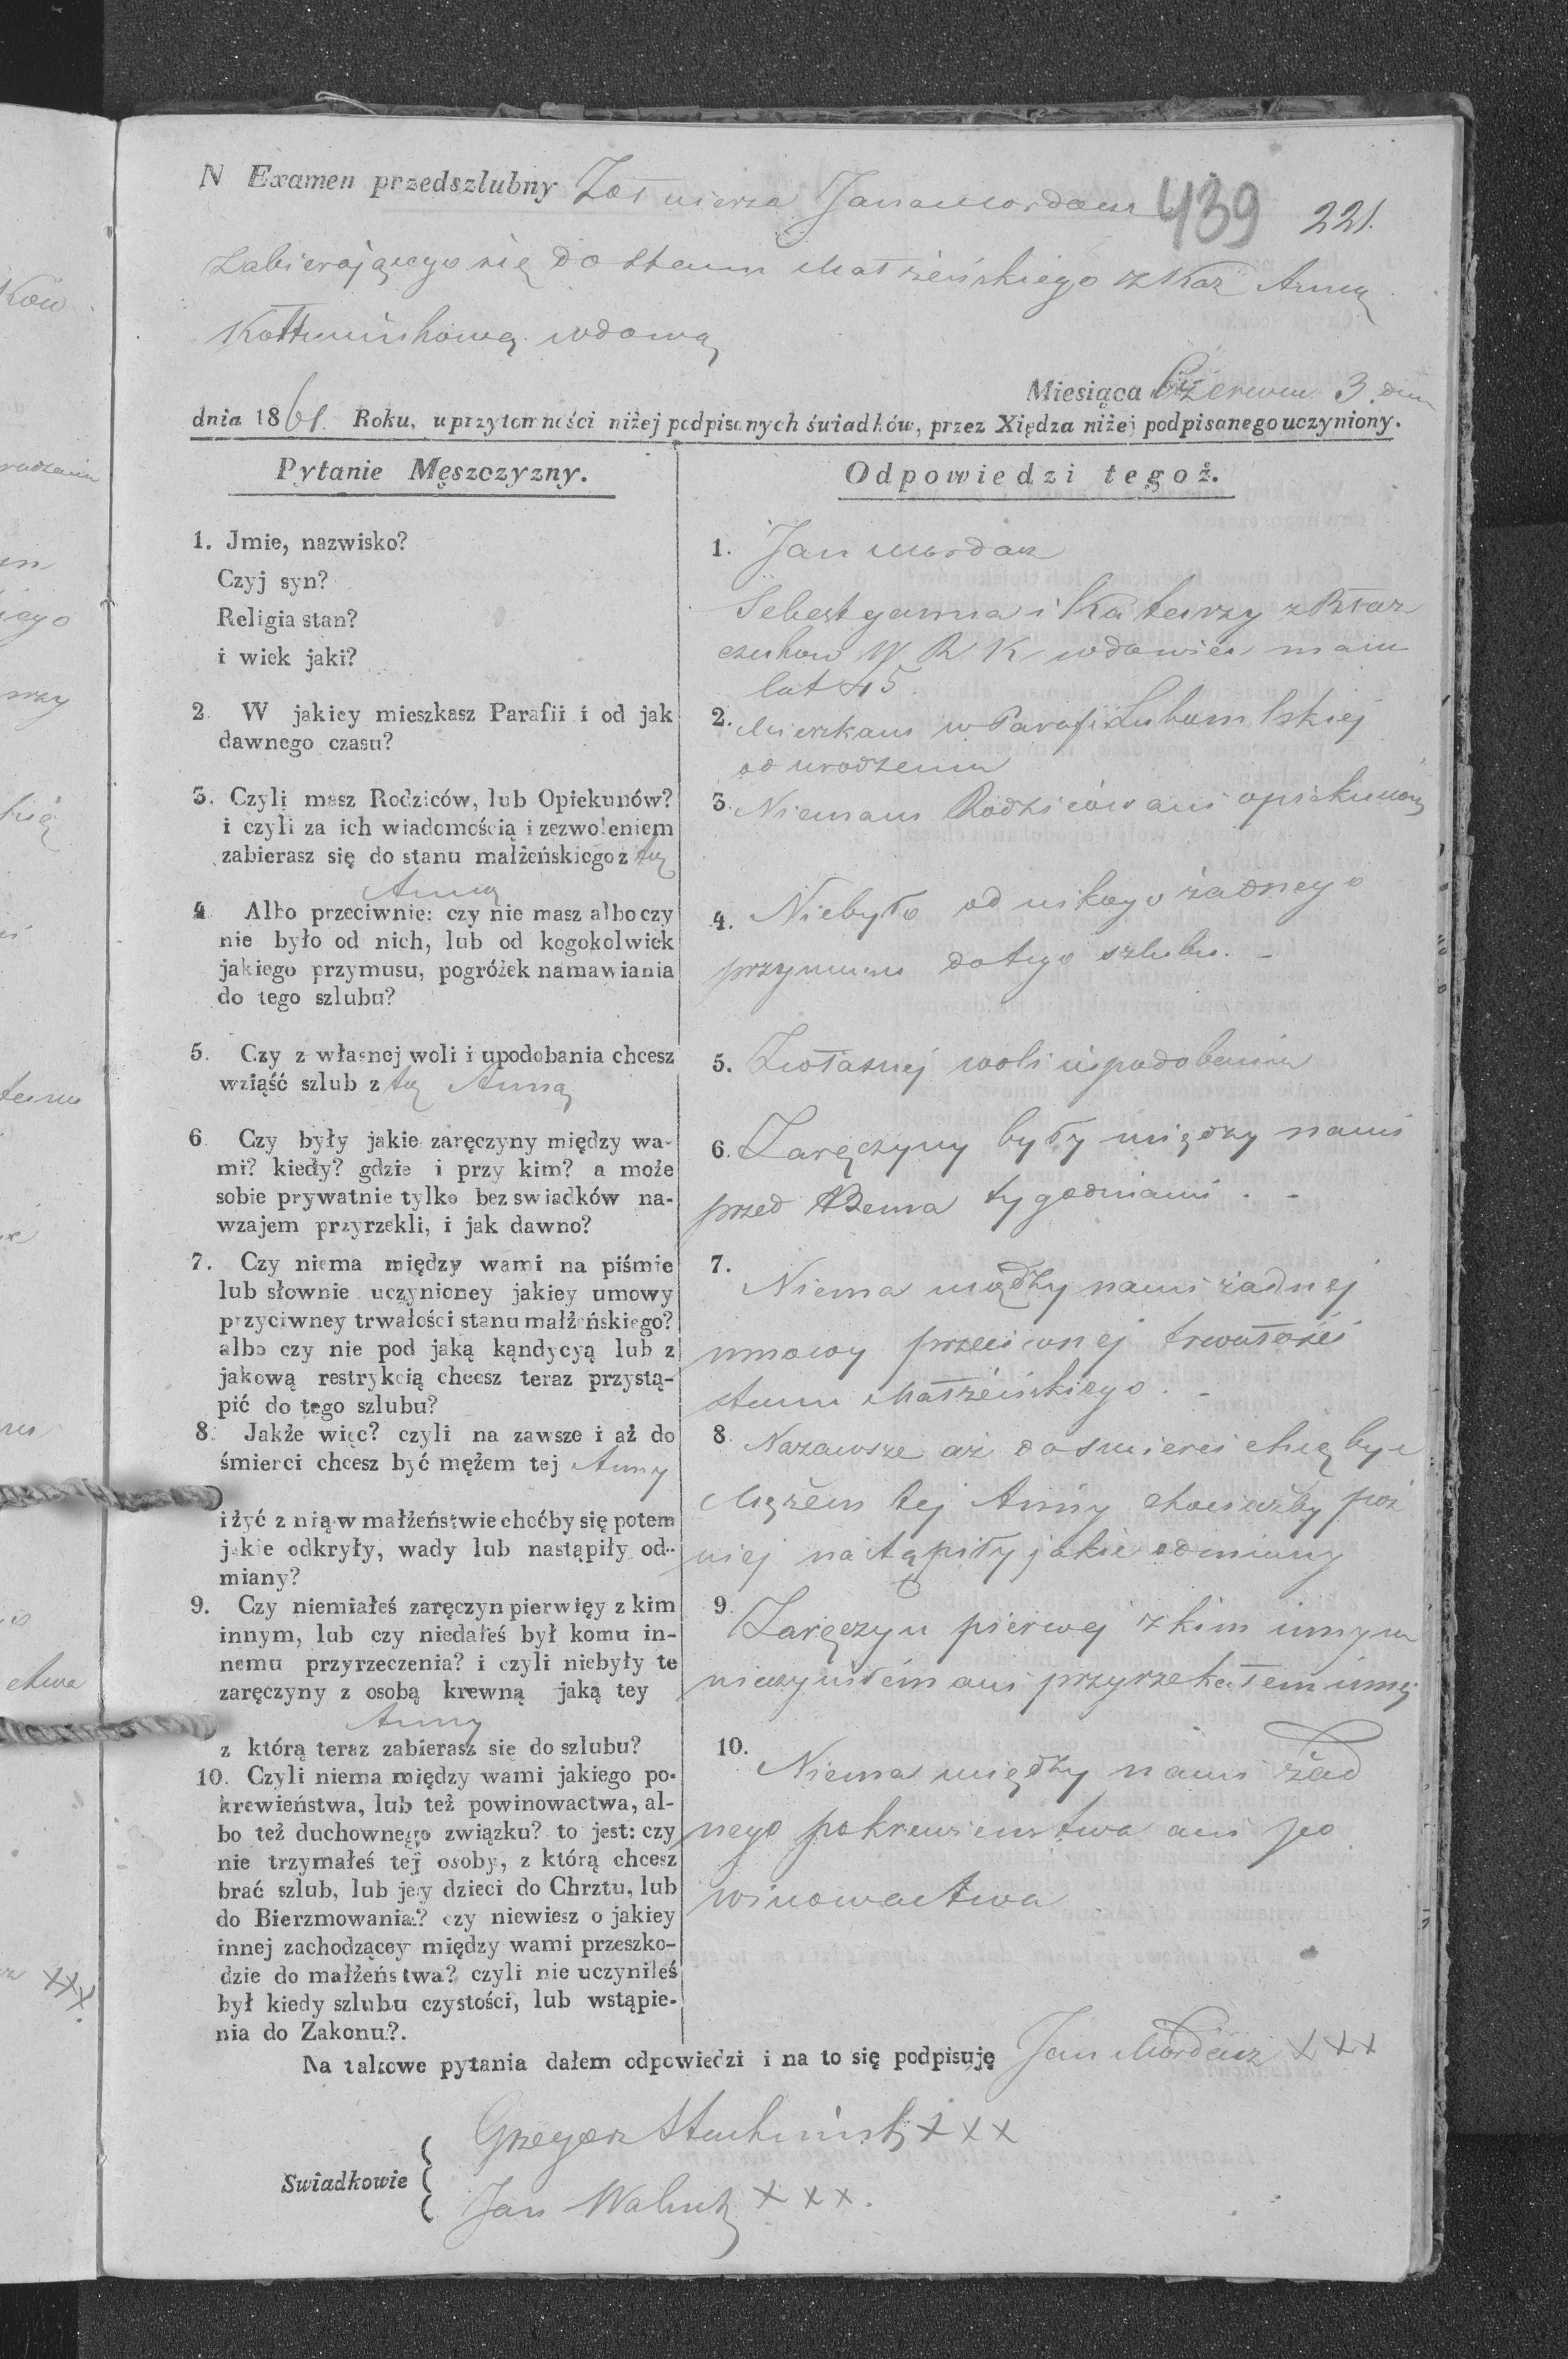 N Examen przedszlubny Żołnierza Jana Mordasz 439 221.
zabierającego się do Stanu Małżeńskiego z Kar Anną
wdową
Miesiąca Czerwca 3. dnia
dnia 1861. Roku, w przytomności niżej podpisanych świadków, przez Xiędza niżej podpisanego uczyniony.
Pytanie Męszczyzny.
1. Jmie, nazwisko?
Czyj syn?
Religia stan?
i wiek jaki?
2. W jakiey mieszkasz Parafii i od jak
dawnego czasu?
3. Czyli masz Rodziców, lub Opiekunów?
i czyli za ich wiadomością i zezwoleniem
zabierasz się do stanu małżeńskiego z tą
Anną
4. Albo przeciwnie: czy nie masz albo czy
nie było od nich, lub od kogokolwiek
jakiego przymusu, pogróżek namawiania
do tego szlubu?
5. Czy z własnej woli i upodobania chcesz
wziąść szlub z tą Anną
6. Czy były jakie zaręczyny między wa-
mi? kiedy? gdzie i przy kim? a może
sobie prywatnie tylko bez swiadków na-
wzajem przyrzekli, i jak dawno?
7. Czy niema między wami na piśmie
lub słownie uczynioney jakiey umowy
przyciwney trwałości stanu małżeńskiego?
albo czy nie pod jaką kąndycyą lub z
jakową restrykcią chcesz teraz przystą-
pić do tego szlubu?
8. Jakże więc? czyli na zawsze i aż do
śmierci chcesz być mężem tej Anny
i żyć z nią w małżeństwie choćby się potem
jakie odkryły, wady lub nastąpiły od-
miany?
9. Czy niemiałeś zaręczyn pierwięy z kim
innym, lub czy niedałeś był komu in-
nemu przyrzeczenia? i czyli niebyły te
zaręczyny z osobą krewną jaką tey
Anny
z którą teraz zabierasz się do szlubu?
10. Czyli niema między wami jakiego po-
krewieństwa, lub też powinowactwa, al-
bo też duchownego związku? to jest: czy
nie trzymałeś tej osoby, z którą chcesz
brać szlub, lub jey dzieci do Chrztu, lub
do Bierzmowania? czy niewiesz o jakiey
innej zachodzącey między wami przeszko-
dzie do małżeństwa? czyli nie uczyniłeś
był kiedy szlubu czystości, lub wstąpie-
nia do Zakonu?.
Odpowiedzi tegoż.
1. Jan Mordasz
Sebestyanna i Katarzy z
W R K wdowiec mam
lat 45
2. Mieszkam w Parafi Lubomlskiej
od urodzenia
3. Niemam Rodziców ani opiekunów
4. Niebyło od nikogo żadnego
przymusu do tego szlubu. -
5. Zwłasnej woli i upodobania
6. Zaręczyny były między nami
przed dwema tygodniami. -
7. Niema między nami żadnej
umowy przeciwnej trwałości
stanu Małżeńskiego. -
8. Nazawsze aż dośmierci chcę być
Mężem tej Anny chociażby póź
niej nastąpiły jakie odmiany
9. Zaręczyn pierwej z kim innym
nieczyniłem ani przyrzekałem innej
10. Niema między nami żad
nego pokrewieństwa ani po
winowactwa
Na takowe pytania dałem odpowiedzi i na to się podpisuję Jan Mordasz XXX
Swiadkowie
Grzegorz XXX
Jan XXX.